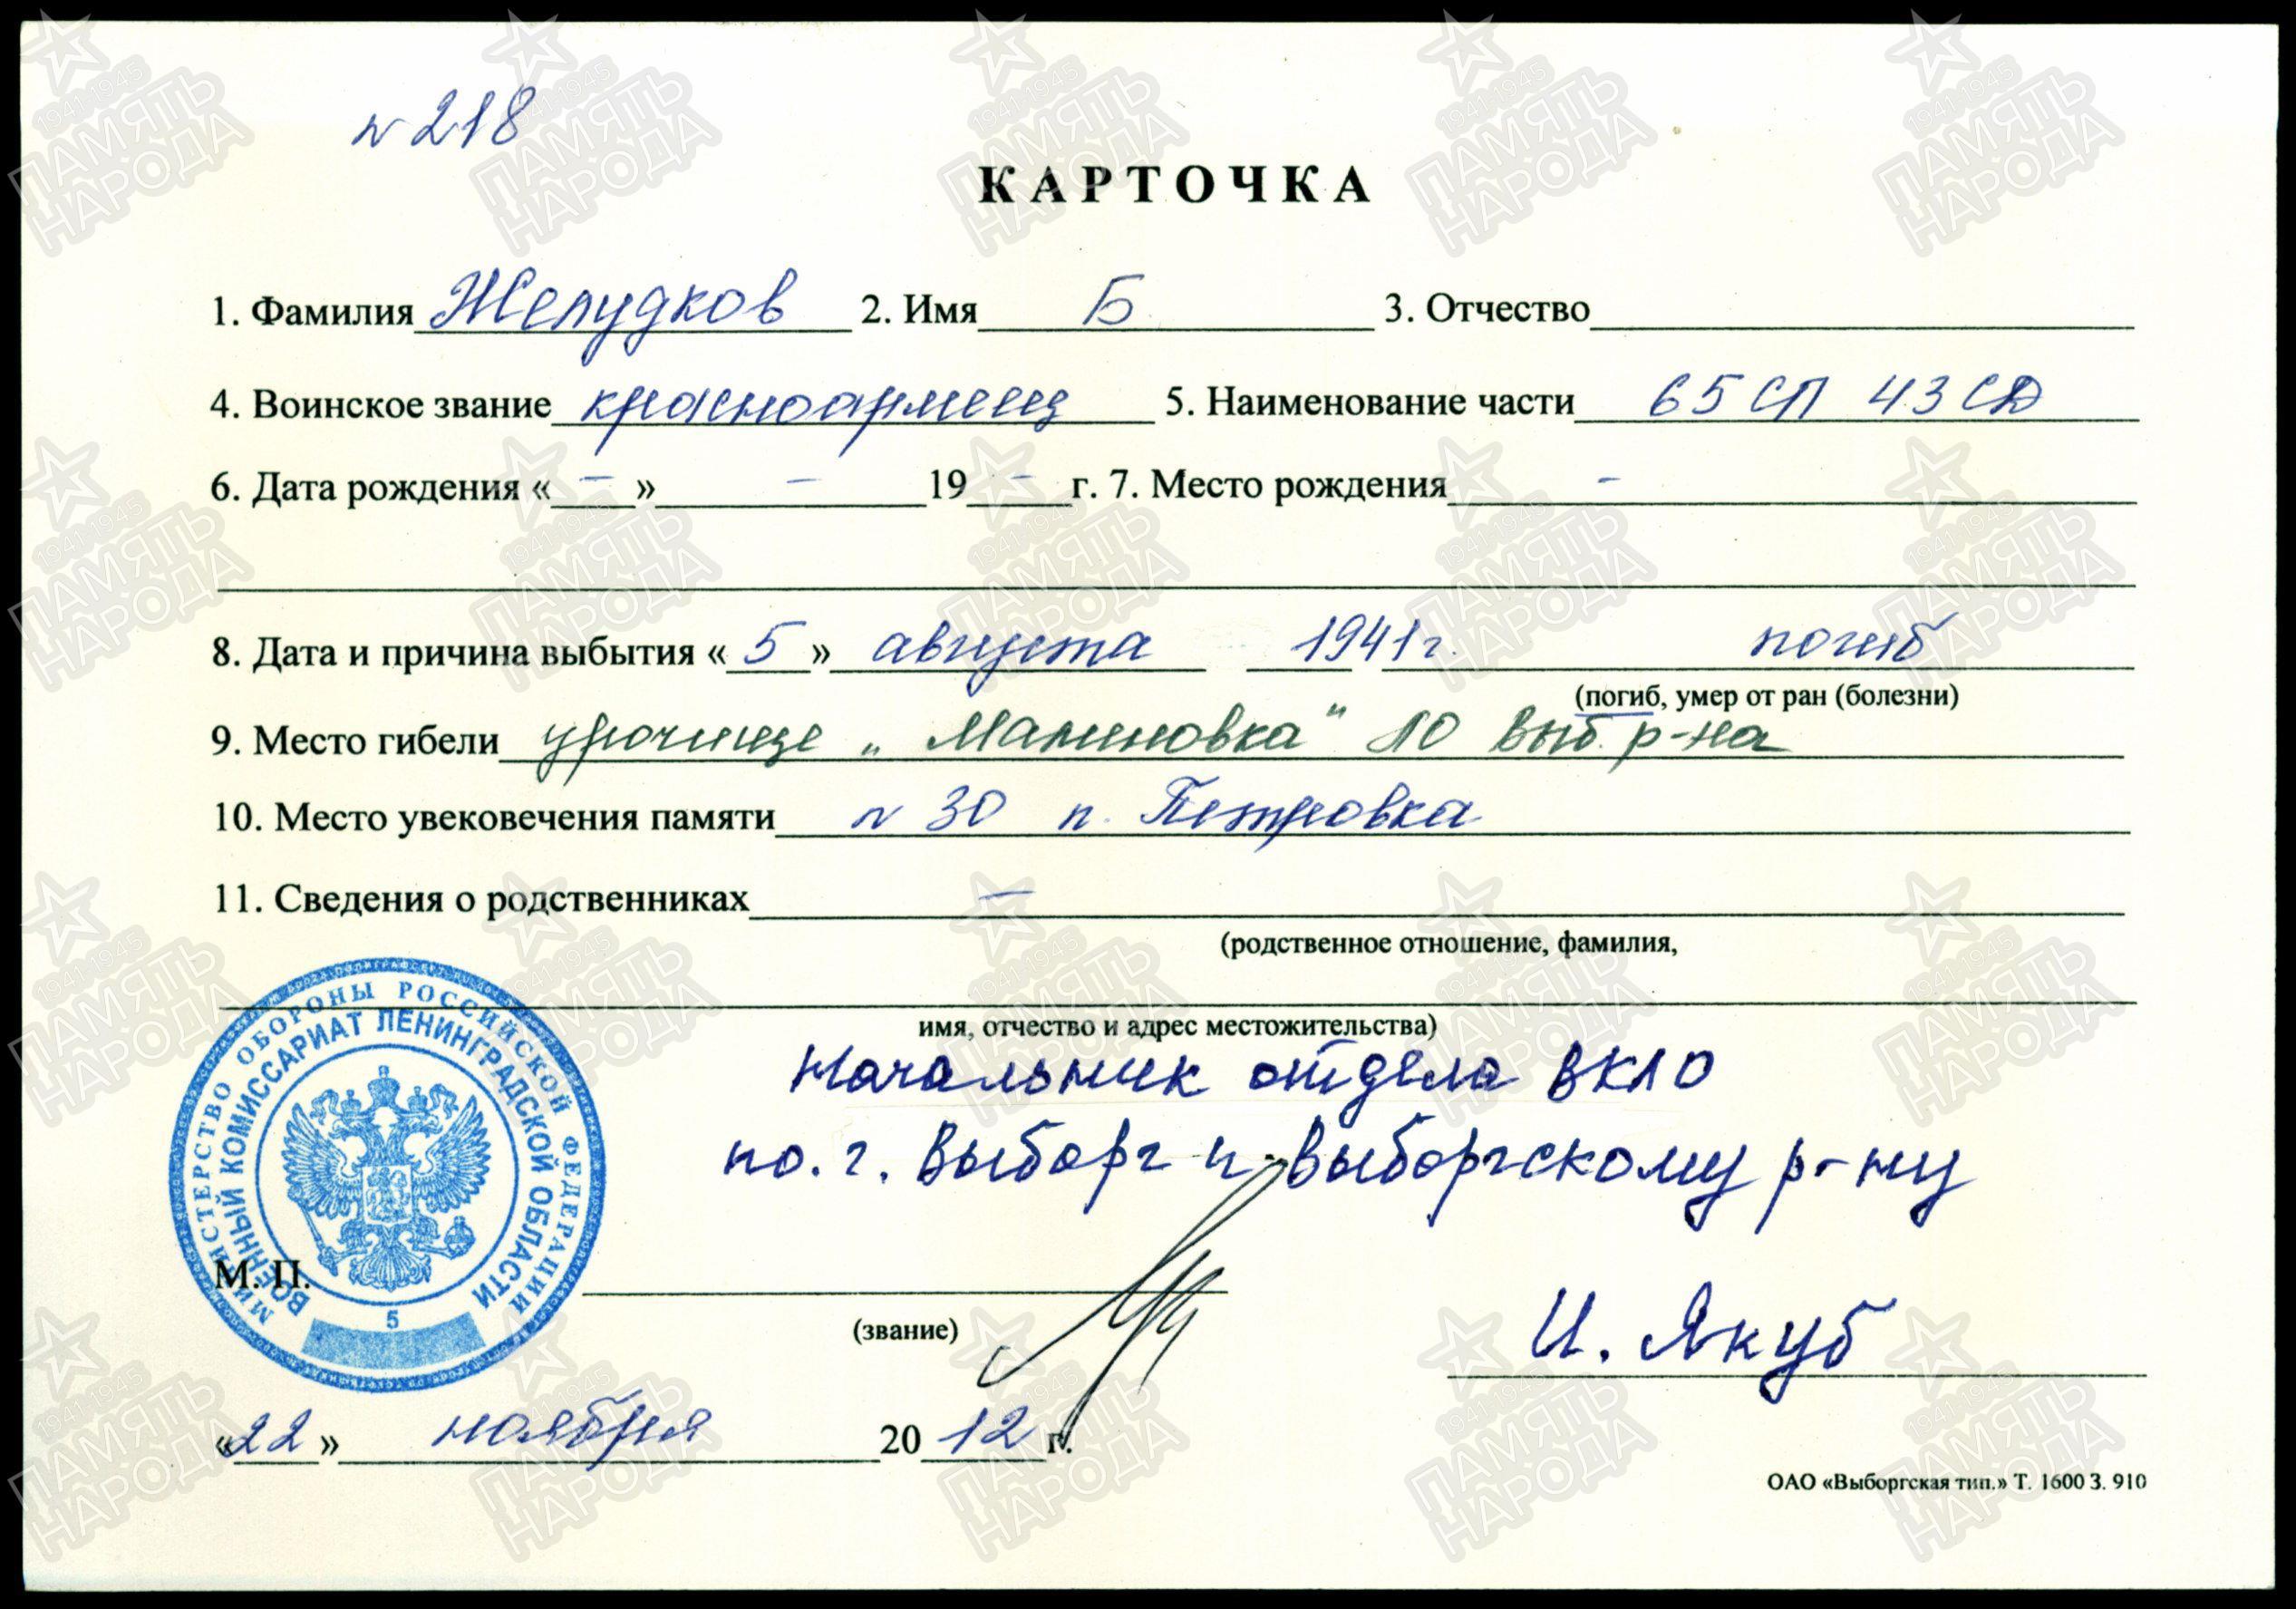 № 218
КАРТОЧКА
1. Фамилия Желудков 2. Имя Б 3. Отчество
4. Воинское звание красноармеец 5. Наименование части 65 СП 43 СД
6. Дата рождения « – » – 19 – г. 7. Место рождения –
8. Дата и причина выбытия « 5 » августа 1941 г. погиб
(погиб, умер от ран (болезни)
9. Место гибели урочище „Малиновка" ЛО Выб. р-на
10. Место увековечения памяти № 30 п. Петровка
11. Сведения о родственниках –
(родственное отношение, фамилия,
имя, отчество и адрес местожительства)
Начальник отдела ВКЛО
по г. Выборг и Выборгскому р-ну
МИНИСТЕРСТВО ОБОРОНЫ РОССИЙСКОЙ ФЕДЕРАЦИИ
ВОЕННЫЙ КОМИССАРИАТ ЛЕНИНГРАДСКОЙ ОБЛАСТИ
5
М. П.
(звание)
И. Якуб
«22» ноября 2012 г.
ОАО «Выборгская тип.» Т. 1600 З. 910
1941-1945
ПАМЯТЬ
НАРОДА